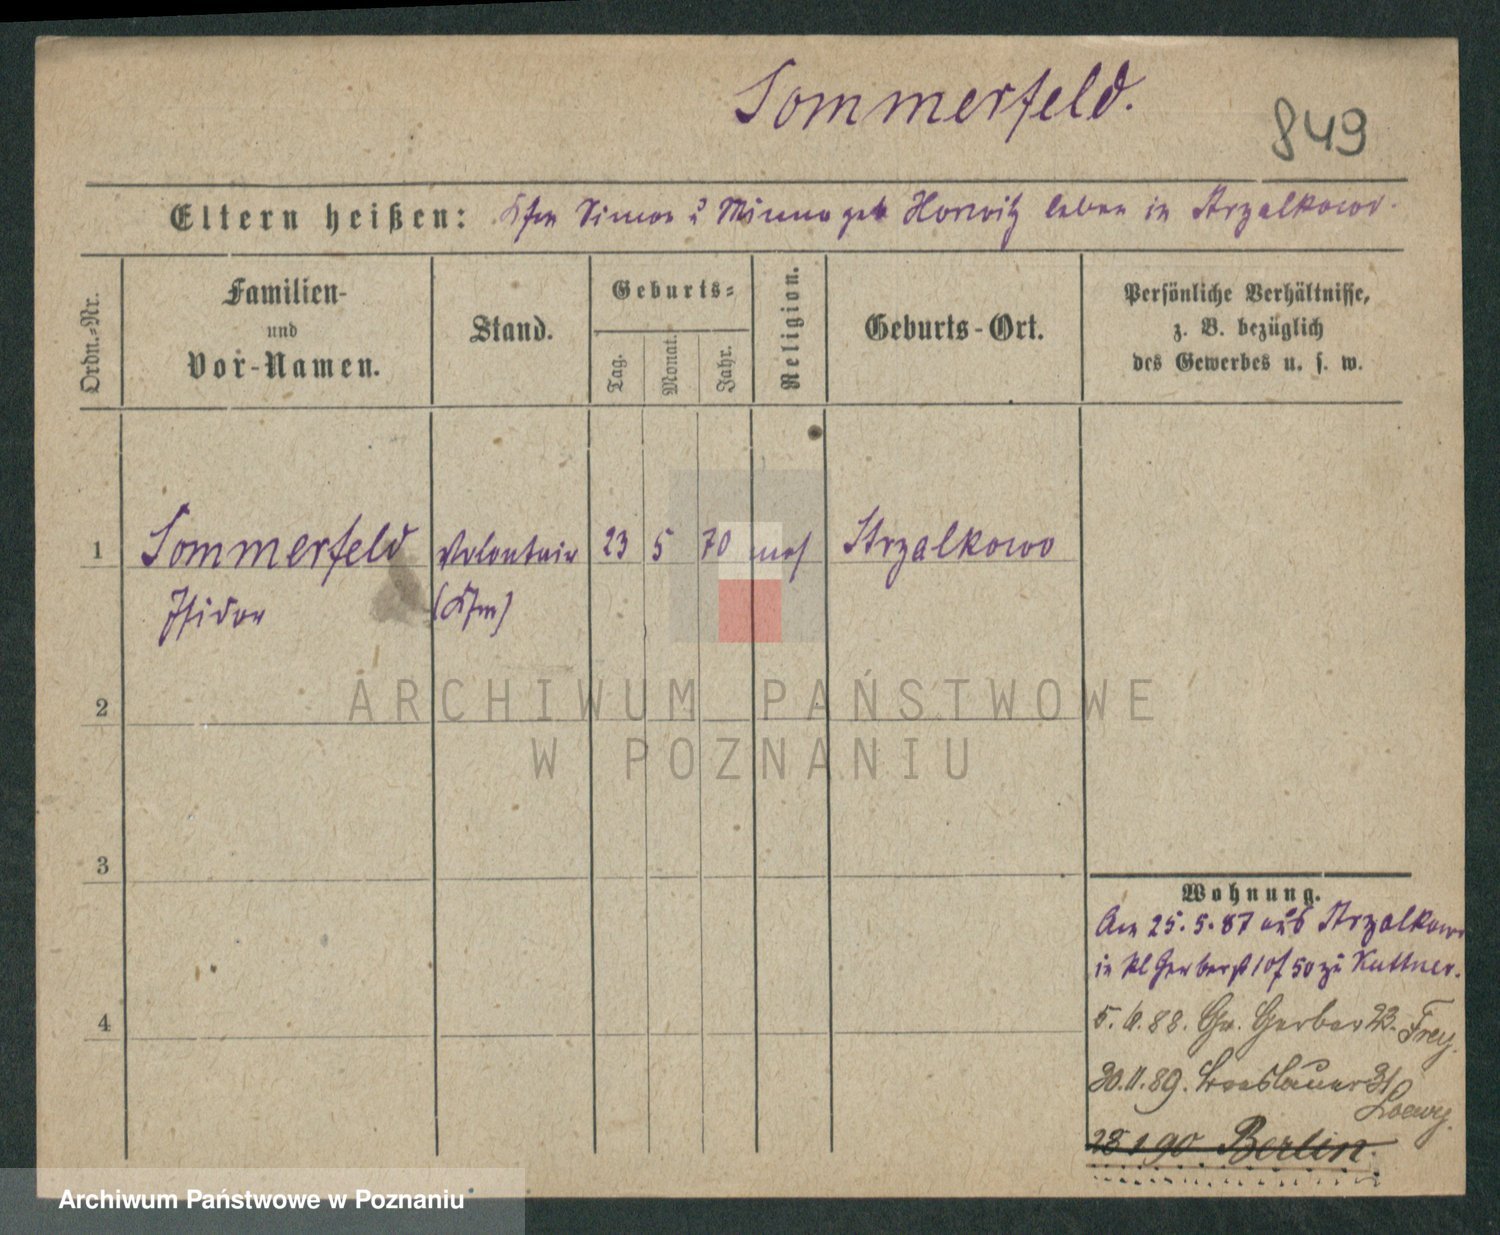 Sommerfeld.
849
Eltern heißen: Kfm Simon u Minna geb Horwitz leben in Strzalkowo.
Ordn.-Nr.
Familien-
und
Vor-Namen.
Stand.
Geburts-
Tag.
Monat.
Jahr.
Religion.
Geburts-Ort.
Persönliche Verhältnisse,
z. B. bezüglich
des Gewerbes u. s. w.
1 Sommerfeld Volontair 23 5 70 mos Strzalkowo
Isidor (Kfm)
2
3
4
Wohnung.
Am 25.5.87 aus Strzalkowo
in Kl Gerberst 10 zu Kuttner.
88. Gr. Gerber 23. Frey.
30.11.89. Breslauer 31
Loewy.
28 1 90 Berlin.
ARCHIWUM PAŃSTWOWE
W POZNANIU
Archiwum Państwowe w Poznaniu